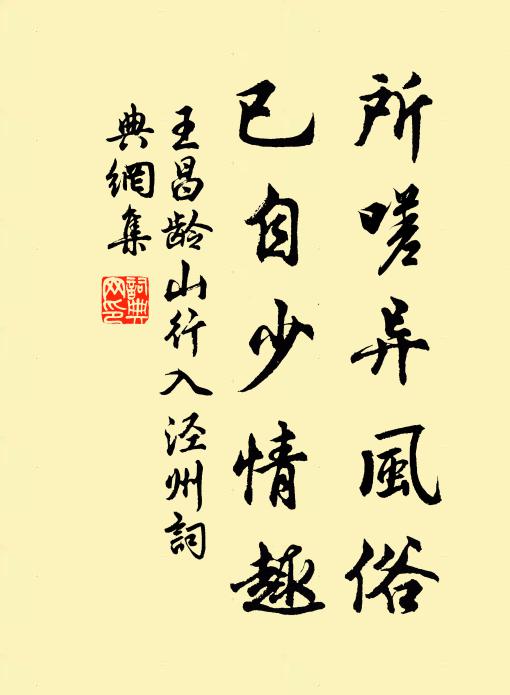 所嗟异風俗
已自少情趣
王昌龄山行入泾州詞
典網集
詞典网印